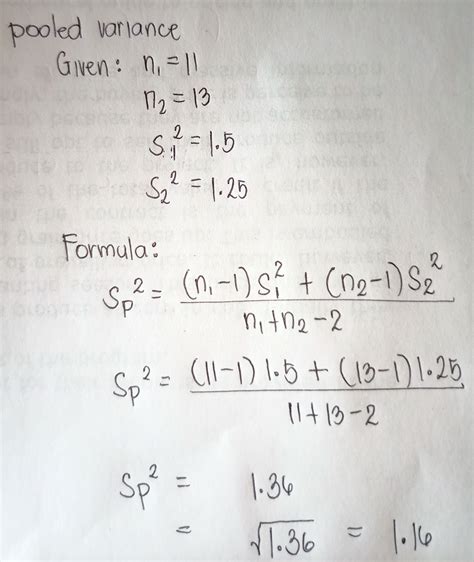 pooled variance
Given: n₁ = 11
n₂ = 13
S₁² = 1.5
S₂² = 1.25
Formula:
Sp² = (n₁-1)S₁² + (n₂-1)S₂² / n₁+n₂-2
Sp² = (11-1)1.5 + (13-1)1.25 / 11+13-2
Sp² = 1.36
= √1.36 = 1.16